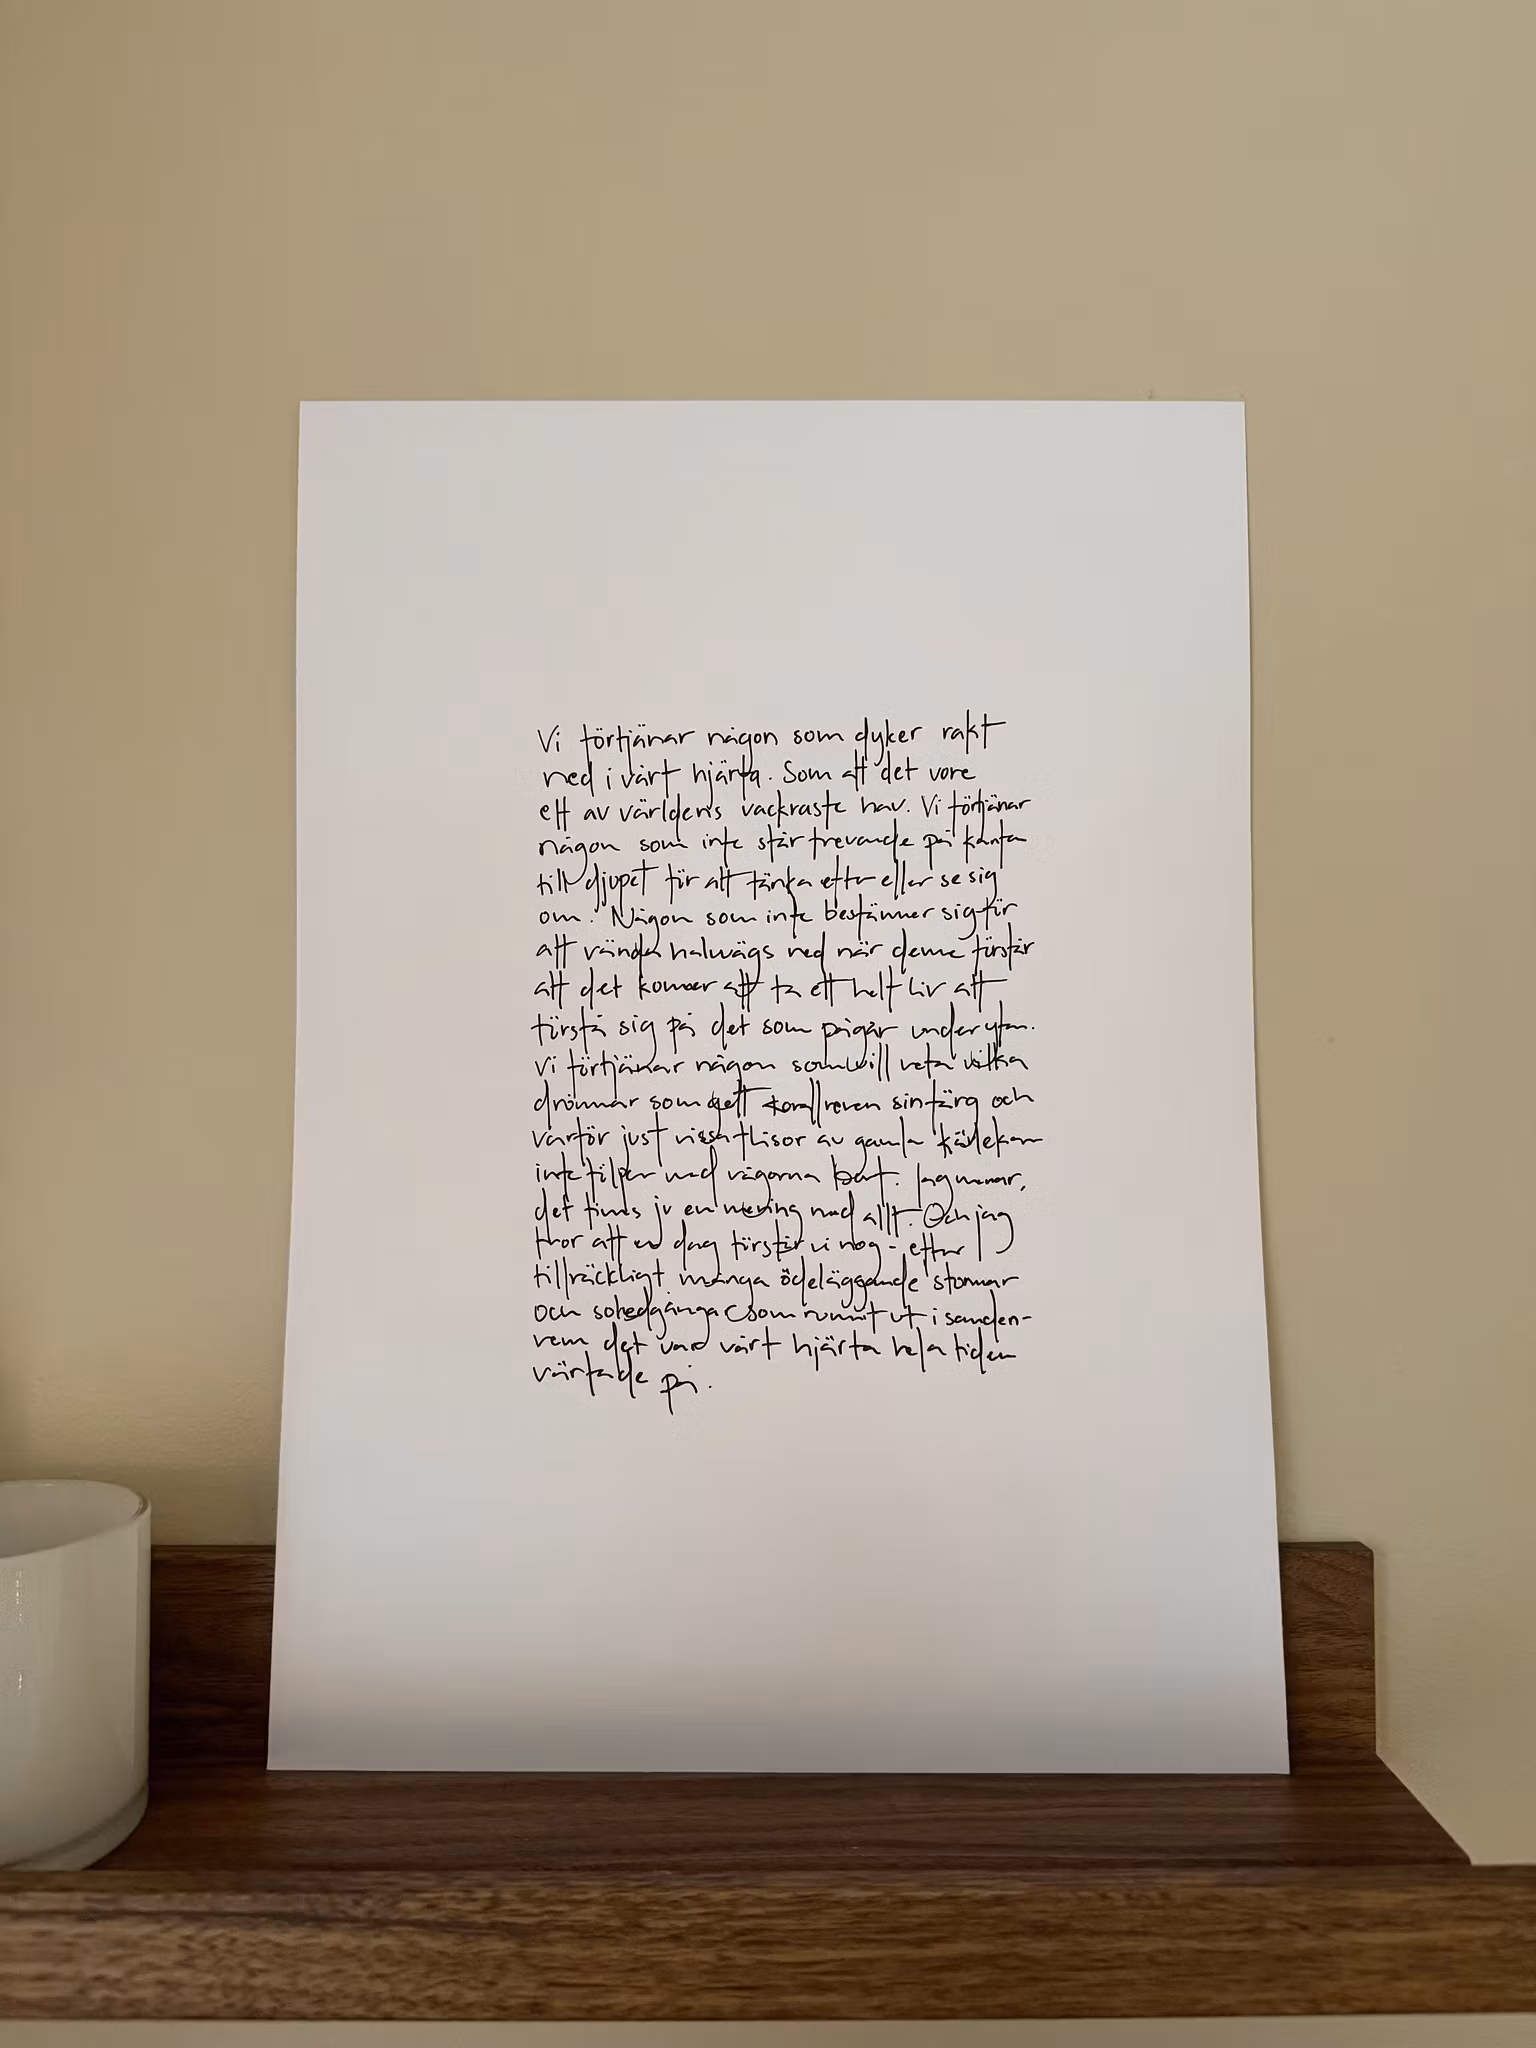 Vi förtjänar någon som dyker rakt
ned i vårt hjärta. Som att det vore
ett av världens vackraste hav. Vi förtjänar
någon som inte står trevande på kanten
till djupet för att tänka efter eller se sig
om. Någon som inte bestämmer sig för
att vända halvvägs ned när denne förstår
att det kommer att ta ett helt liv att
förstå sig på det som pågår under ytan.
Vi förtjänar någon som vill veta vilka
drömmar som gett korallreven sin färg och
varför just vissa flisor av gamla kärlekar
inte följer med vågorna bort. Jag menar,
det finns ju en mening med allt. Och jag
tror att en dag förstår vi nog - efter
tillräckligt många ödeläggande stormar
och solnedgångar som runnit ut i sanden -
vem det var vårt hjärta hela tiden
väntade på.